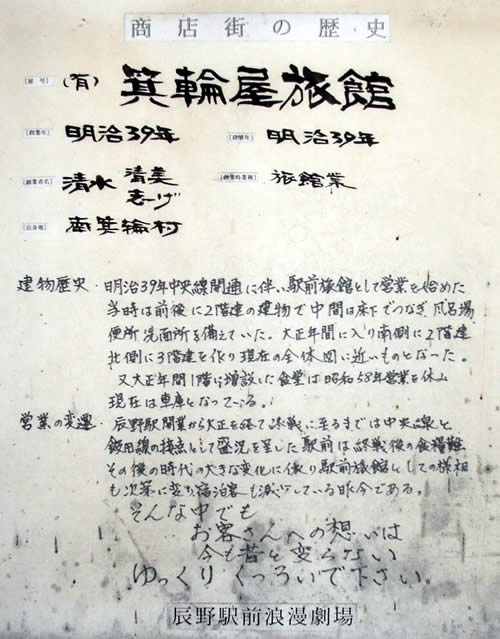 商店街の歴史
[屋号] (有) 箕輪屋旅館
[創業年] 明治39年 [建築年] 明治39年
[創業者名] 清水 清美 [創業時業種] 旅館業
志げ
[出身地] 南箕輪村
建物歴史・明治39年中央線開通に伴い駅前旅館として営業を始めた
当時は前後に2階建の建物で中間は床下でつなぎ風呂場
便所洗面所を備えていた。大正年間に入り南側に2階建
北側に3階建を作り現在の全体図に近いものとなった。
又大正年間1階に増設した食堂は昭和58年営業を休止
現在は車庫となっている。
営業の変遷・辰野駅開業から大正を経て終戦に至るまでは中央線と
飯田線の接点として盛況を呈した駅前は終戦後の食糧難
その後の時代の大きな変化に依り駅前旅館としての様相
も次第に変り宿泊客も減少している昨今である。
そんな中でも
お客さんへの想いは
今も昔と変らない
ゆっくりくつろいで下さい。
辰野駅前浪漫劇場